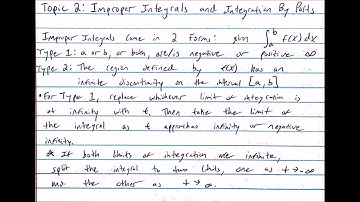 Topic 2: Improper Integrals and Integration By Parts
Improper Integrals come in 2 Forms: given ∫_a^b f(x) dx
Type 1: a or b, or both, are/is negative or positive ∞
Type 2: The region defined by f(x) has an
infinite discontinuity on the interval [a, b]
• For Type 1, replace whichever limit of integration is
at infinity with t, Then take the limit of
the integral as t approaches infinity or negative
infinity.
* If both limits of integration are infinite,
split the integral to two limits, one as t → -∞
and the other as t → ∞.